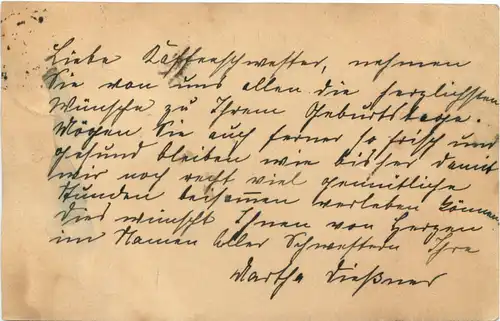 Liebe Kaffeeschwester, nehmen
Sie von uns allen die herzlichsten
Wünsche zu Ihrem Geburtstage.
Mögen Sie auch ferner so frisch und
gesund bleiben wie bisher damit
wir noch recht viel gemütliche
Stunden beisammen verleben können
Dies wünscht Ihnen von Herzen
im Namen aller Schwestern Ihre
Martha Dießner